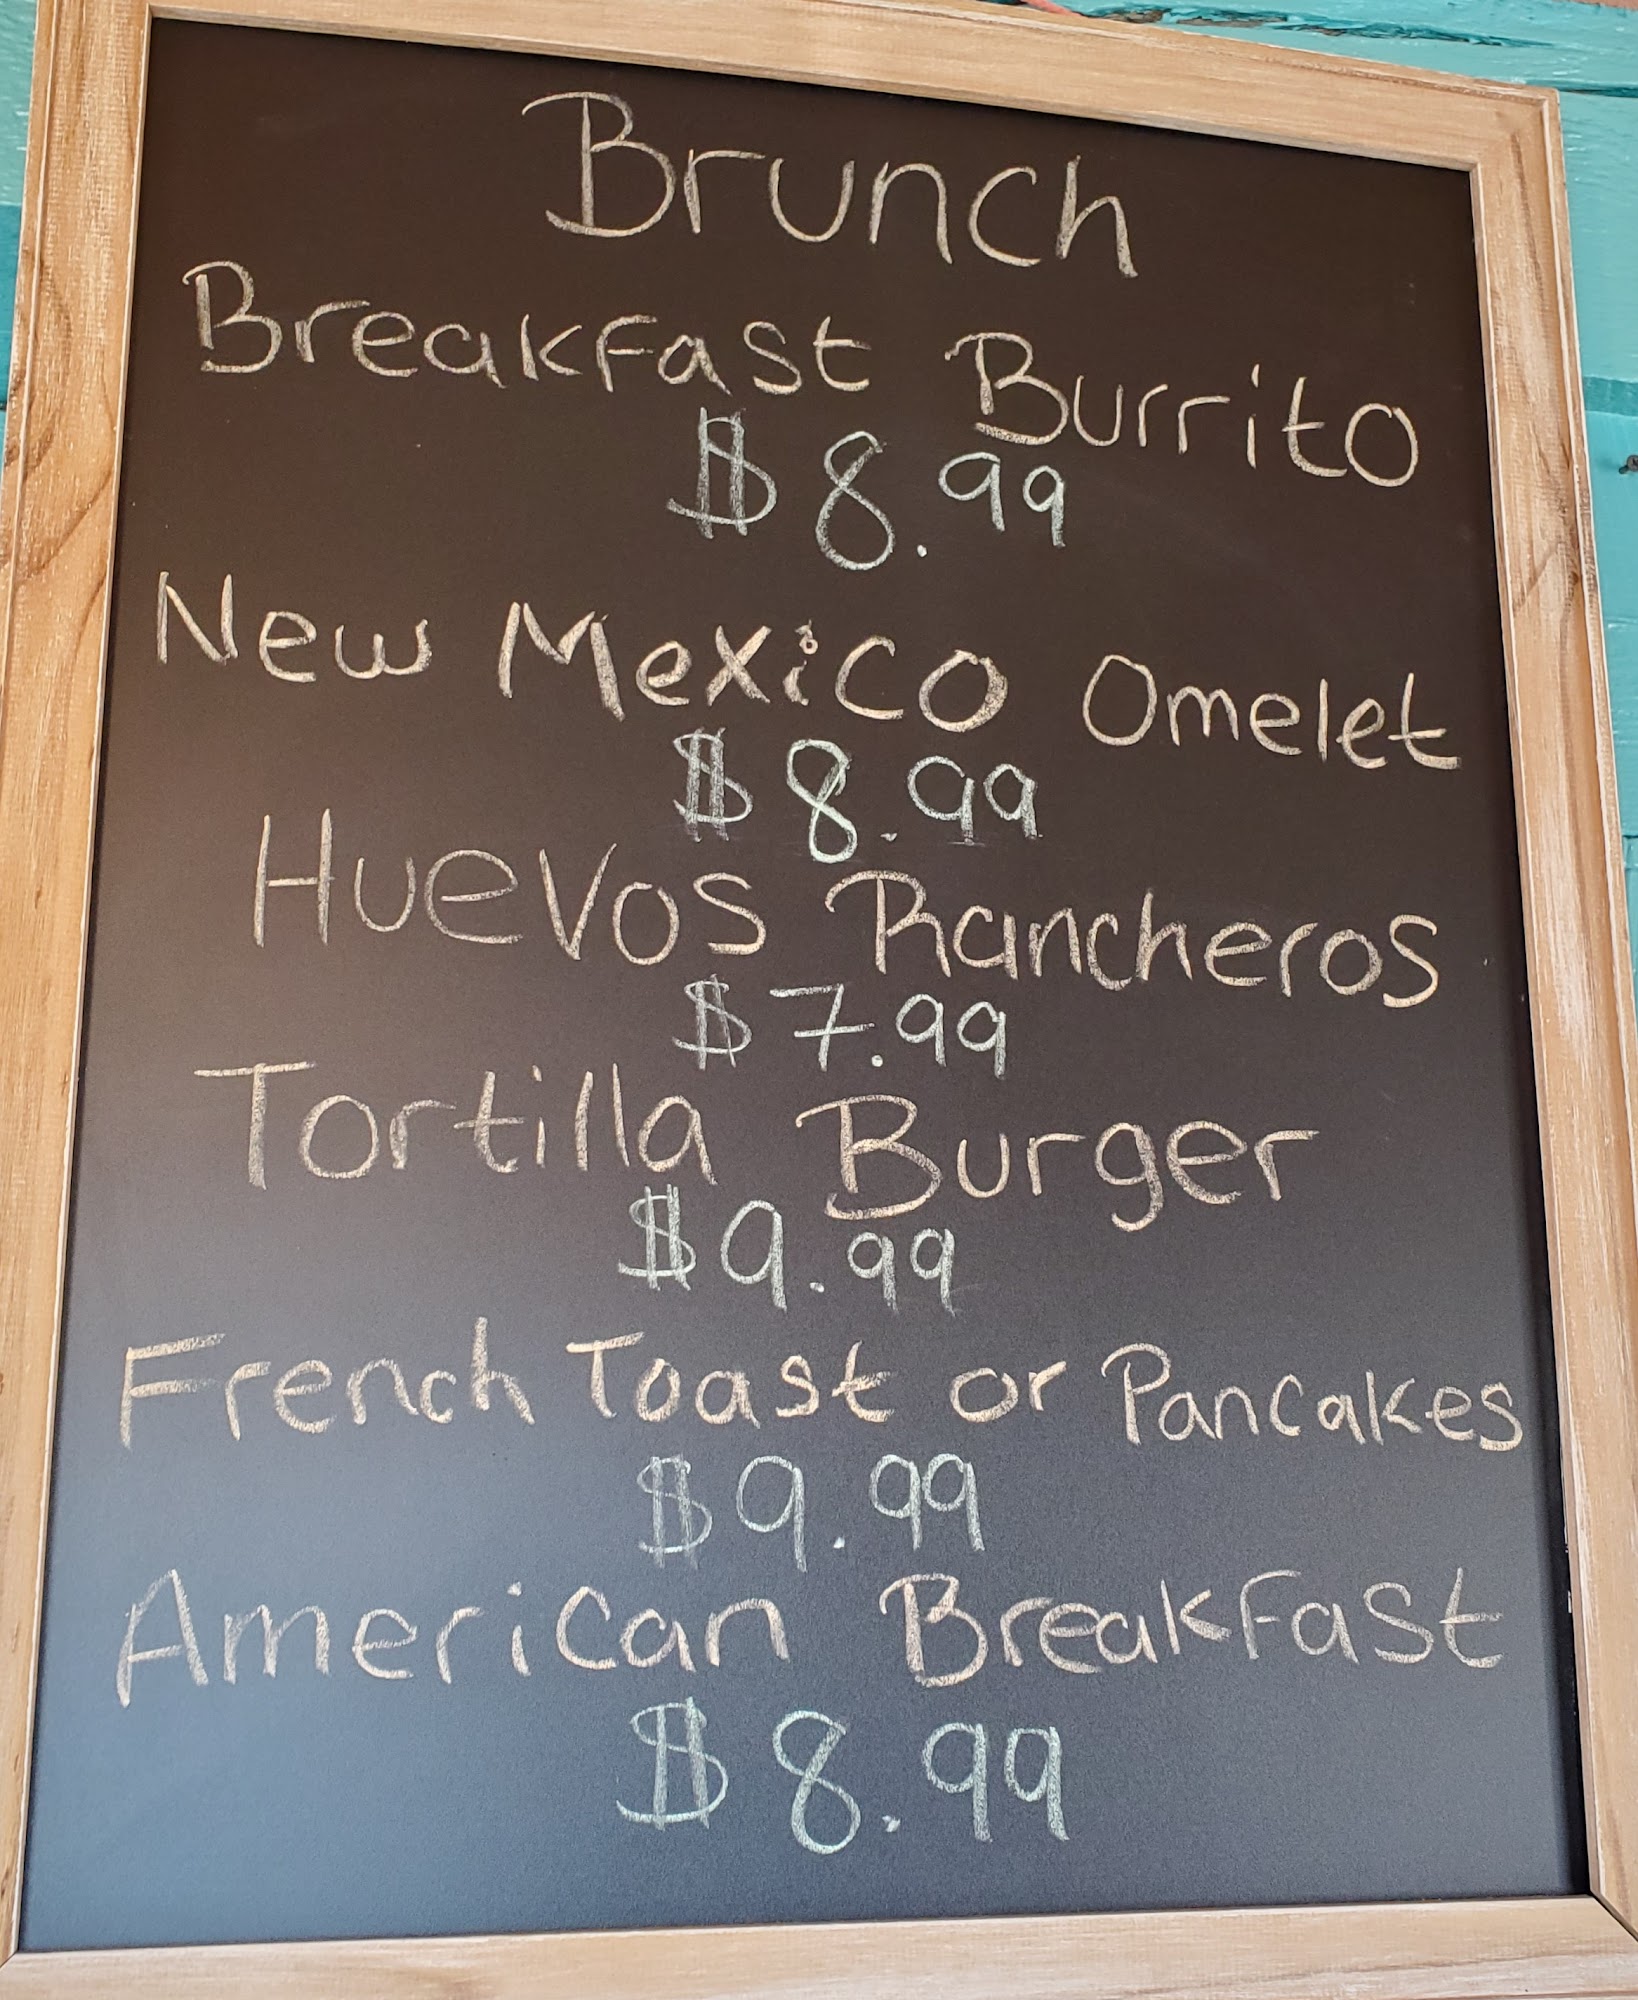 Brunch
Breakfast Burrito
$8.99
New Mexico Omelet
$8.99
Huevos Rancheros
$7.99
Tortilla Burger
$9.99
French Toast or Pancakes
$9.99
American Breakfast
$8.99